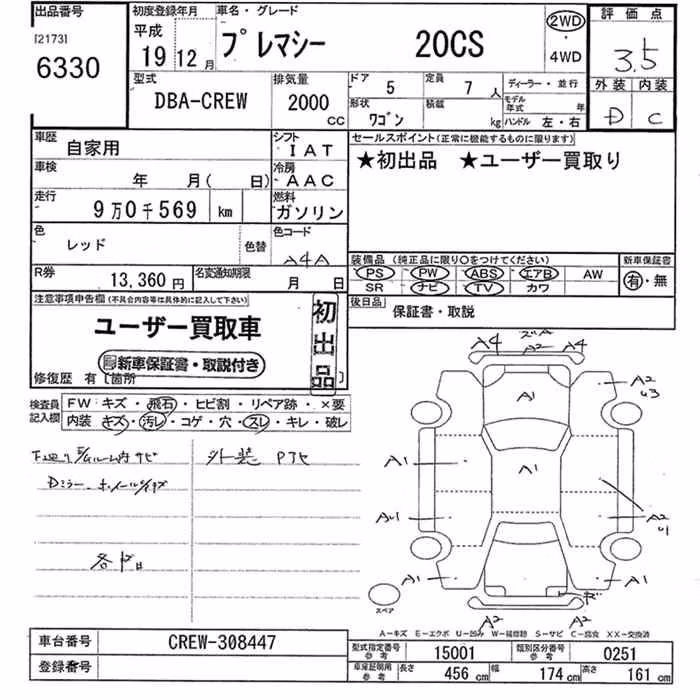 出品番号 初度登録年月 車名・グレード 評価点
[2173]
6330
平成
19 12月
プレマシー 20CS
2WD
・
4WD
3.5
外装 内装
D C
型式 排気量 ドア 5 定員 7人 ディーラー・並行
DBA-CREW 2000 CC
形状 ワゴン 積載 kg モデル年式 年
ハンドル 左・右
車歴 自家用 シフト IAT
セールスポイント(正常に機能するものに限ります)
★初出品 ★ユーザー買取り
車検 年 月( 日) 冷房 AAC
走行 9万0千569 km 燃料 ガソリン
色 レッド 色替 色コード A4A
装備品 (純正品に限り○をつけてください) 新車保証書
PS PW ABS エアB AW
SR ナビ TV カワ
有・無
R券 13,360円 名変通知期限 月 日
後日品 保証書・取説
注意事項申告欄(不具合内容等は具体的に記入して下さい)
ユーザー買取車
初出品
新車保証書・取説付き
修復歴 有〔箇所
検査員記入欄
FW:キズ・飛石・ヒビ割・リペア跡・×要
内装 キズ・汚レ・コゲ・穴・スレ・キレ・破レ
外装 Pナビ
A4 A2 A4
A1
A2
A1
A1
A1
A2
A1 A1
スペア
A2 A2
A-キズ E-エクボ U-凹み W-補修跡 S-サビ C-腐食 XX-交換済
車台番号 CREW-308447
登録番号
型式指定番号 参考 15001 類別区分番号 参考 0251
車庫証明用 参考 長さ 456 cm 幅 174 cm 高さ 161 cm